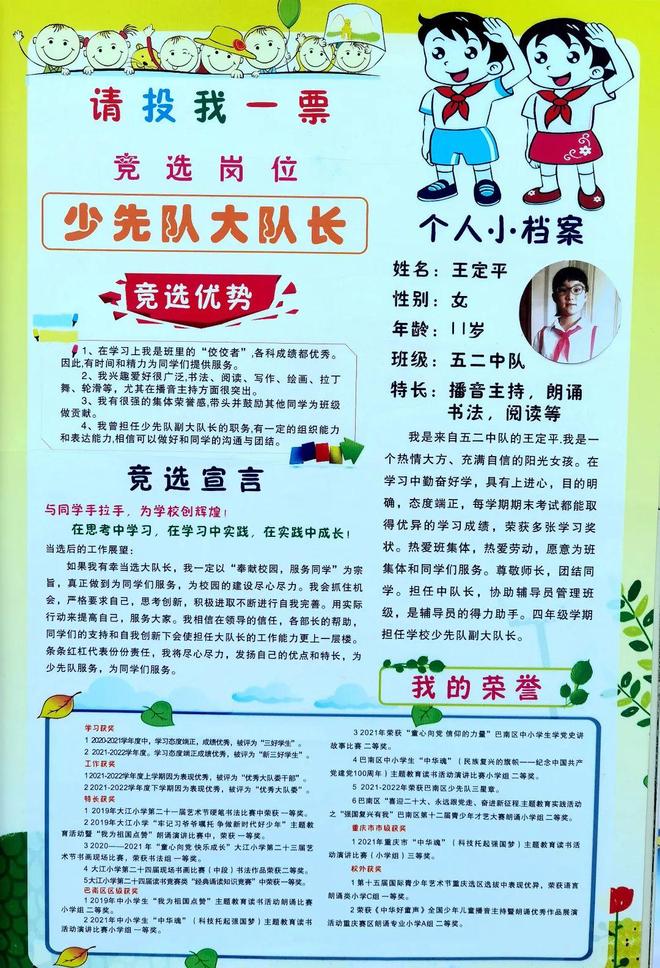 请投我一票
竞选岗位
少先队大队长
竞选优势
1、在学习上我是班里的“佼佼者”,各科成绩都优秀。
因此,有时间和精力为同学们提供服务。
2、我兴趣爱好很广泛,书法、阅读、写作、绘画、拉丁
舞、轮滑等，尤其在播音主持方面很突出。
3、我有很强的集体荣誉感,带头并鼓励其他同学为班级
做贡献。
4、我曾担任少先队副大队长的职务,有一定的组织能力
和表达能力,相信可以做好和同学的沟通与团结。
竞选宣言
与同学手拉手，为学校创辉煌！
在思考中学习，在学习中实践，在实践中成长！
当选后的工作展望：
如果我有幸当选大队长，我一定以“奉献校园，服务同学”为宗
旨，真正做到为同学们服务，为校园的建设尽心尽力。我会抓住机
会，严格要求自己，思考创新，积极进取不断进行自我完善。用实际
行动来提高自己，服务大家。我相信在领导的信任，各部长的帮助，
同学们的支持和自我创新下会使担任大队长的工作能力更上一层楼。
条条红杠代表份份责任，我将尽心尽力，发扬自己的优点和特长，为
少先队服务，为同学们服务。
个人小档案
姓名：王定平
性别：女
年龄：11岁
班级：五二中队
特长：播音主持，朗诵
书法，阅读等
我是来自五二中队的王定平,我是一
个热情大方、充满自信的阳光女孩。在
学习中勤奋好学，具有上进心，目的明
确，态度端正，每学期期末考试都能取
得优异的学习成绩，荣获多张学习奖
状。热爱班集体，热爱劳动，愿意为班
集体和同学们服务。尊敬师长，团结同
学。担任中队长，协助辅导员管理班
级，是辅导员的得力助手。四年级学期
担任学校少先队副大队长。
我的荣誉
学习获奖
1 2020-2021学年度中，学习态度端正，成绩优秀，被评为“三好学生”。
2 2021-2022学年度。学习态度端正成绩优秀，被评为“新三好学生”。
工作获奖
12021-2022学年度上学期因为表现优秀，被评为“优秀大队委干部”。
2 2021-2022年度下学期因为表现优秀，被评为“优秀大队委”。
特长获奖
1 2019年大江小学第二十一届艺术节硬笔书法比赛中荣获一等奖。
2 2019年大江小学“牢记习爷爷嘱托 争做新时代好少年”主题教
育活动暨“我为祖国点赞”朗诵演讲比赛中，荣获一等奖。
3 2020——2021年“童心向党 快乐成长”大江小学第二十三届艺
术节书画现场比赛，荣获书法组 一等奖。
4 大江小学第二十四届现场书画比赛（中段）书法作品荣获二等奖。
5大江小学第二十四届读书竞赛类“经典诵读知识竞赛”中荣获一等奖。
巴南区区级获奖
1 2019年中小学生“我为祖国点赞”主题教育读书活动朗诵比赛
小学组 二等奖。
2 2021年中小学生“中华魂”（科技托起强国梦）主题教育读书
活动演讲比赛小学组 一等奖。
3 2021年荣获“童心向党 信仰的力量”巴南区中小学生学党史讲
故事比赛 二等奖。
4 巴南区中小学生“中华魂”（民族复兴的旗帜——纪念中国共产
党建党100周年）主题教育读书活动演讲比赛小学组 二等奖。
5 2021-2022年荣获巴南区少先队三星章。
6巴南区“喜迎二十大、永远跟党走、奋进新征程,主题教育实践活动
之“强国复兴有我” 巴南区第十二届青少年才艺大赛朗诵小学组二等奖。
重庆市市级获奖
1 2021年重庆市“中华魂”（科技托起强国梦）主题教育读书活
动演讲比赛（小学组）三等奖。
校外获奖
1 第十五届国际青少年艺术节重庆选区选拔中表现优异，荣获语言
朗诵类小学C组 一等奖。
2 荣获《中华好童声》全国少年儿童播音主持暨朗诵优秀作品展演
活动重庆赛区朗诵专业小学A组 二等奖。